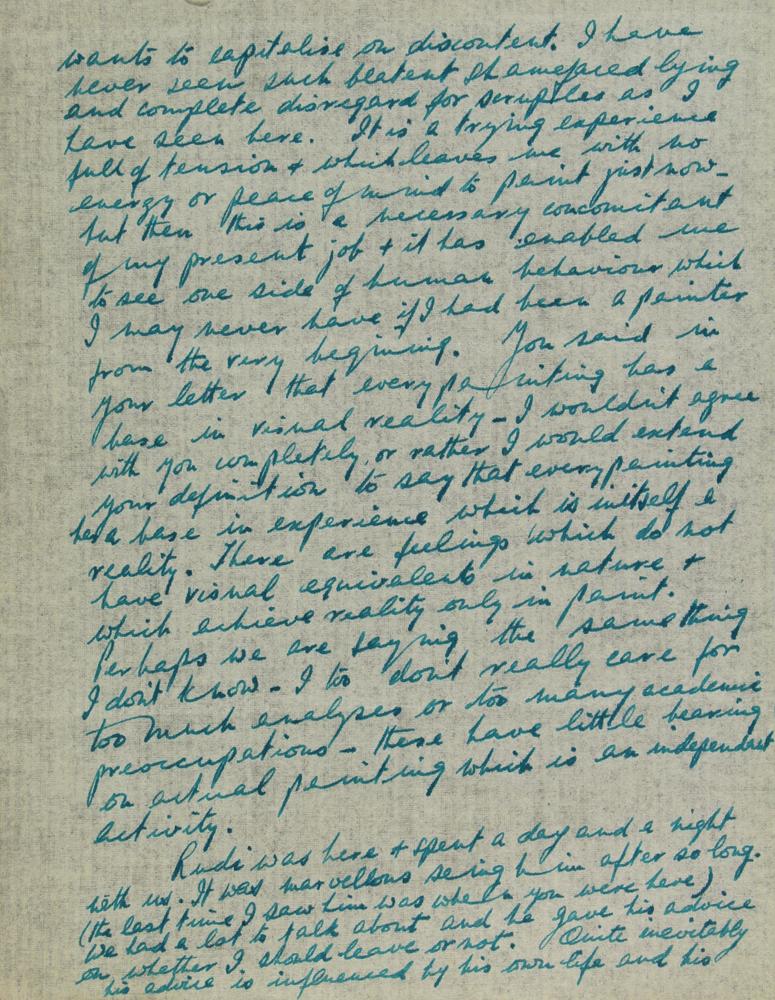 wants to capitalise on discontent. I have
never seen such blatent shamefaced lying
and complete disregard for scruples as I
have seen here. It is a trying experience
full of tension + which leaves me with no
energy or peace of mind to paint just now -
but then this is a necessary concomitant
of my present job + it has enabled me
to see one side of human behaviour which
I may never have if I had been a painter
from the very begining. You said in
your letter that every painting has a
base in visual reality - I wouldn't agree
with you completely, or rather I would extend
your definition to say that every painting
has a base in experience which is initself a
reality. There are feelings which do not
have visual equivalents in nature +
which achieve reality only in paint.
Perhaps we are saying the same thing
I don't know - I too don't really care for
too much analyses or too many academic
preoccupations - these have little bearing
on actual painting which is an independent
activity.
Rudi was here + spent a day and a night
with us. It was marvellous seing him after so long.
(the last time I saw him was when you were here)
we had a lot to talk about and he gave his advice
on whether I should leave or not. Quite inevitably
his advice is influenced by his own life and his